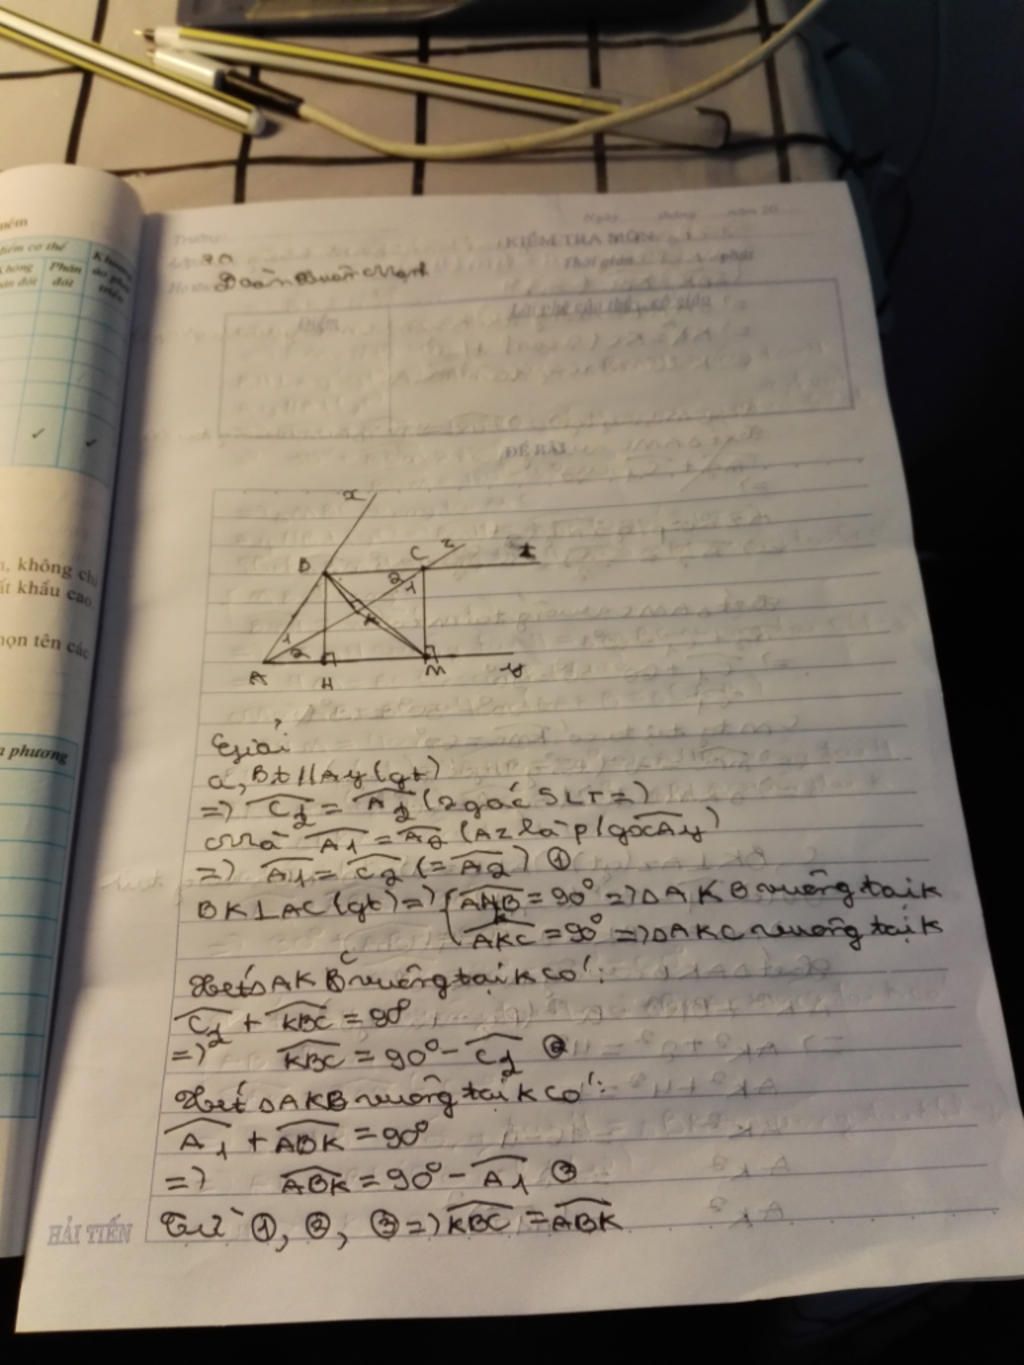 ném
điểm cơ thể
Không
Phân
đốt
Khương
, không ch
ất khẩu cao.
họn tên các
a phương
Ngày tháng năm 20
Trường:
KIỂM TRA MÔN
Thời gian phút
Điểm
Lời phê của thầy, cô giáo
ĐỀ BÀI
x
B C z t
2 1
K
1 2
A H M y
Giải
a, Bt // Ay (gt)
=> C2 = A2 (2 góc SLT =)
Mà A1 = A2 (Az là p/g xAy)
=> A1 = C2 (= A2) ①
BK ⊥ AC (gt) => { AKB = 90° => △AKB vuông tại K
AKC = 90° => △AKC vuông tại K
Xét △AKB vuông tại K có:
C
C2 + KBC = 90°
=> KBC = 90° - C2 ②
Xét △AKB vuông tại K có:
A1 + ABK = 90°
=> ABK = 90° - A1 ③
Từ ①, ②, ③ => KBC = ABK
HẢI TIẾN